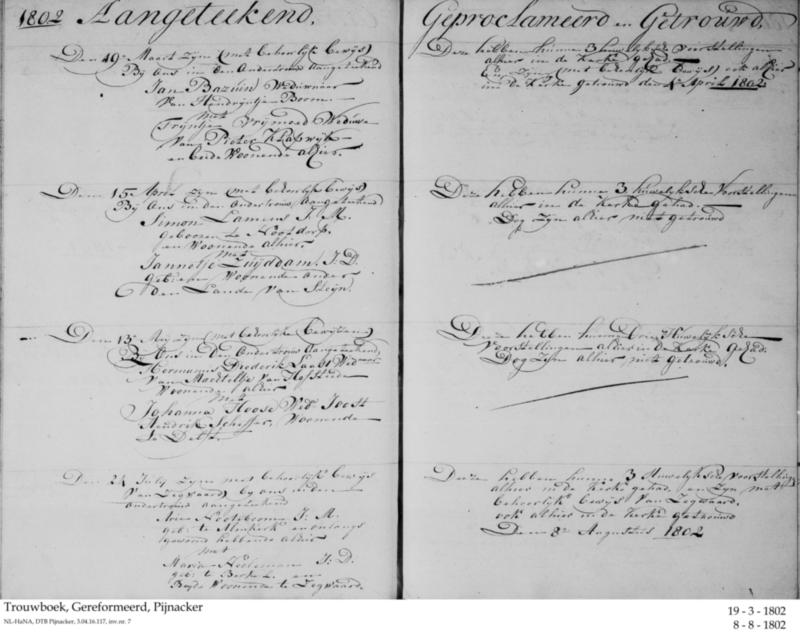 1802 Aangeteekend.
Den 19e Maart zijn (met behoorlijk bewijs)
Bij Ons in den Ondertrouw aangeteekend
Jan Bazuin Weduwnaar
van Hendrijntje Boom
met
Trijntje Vrijmoed Weduwe
van Pieter Klapwijk
en beide Woonende alhier.
Den 15e zijn (met behoorlijk bewijs)
Bij Ons in den Ondertrouw Aangeteekend
Simon Lamens J.M.
geboren te Nootdorp
en Woonende alhier.
met
Jannetje Zuijddam. J.D.
Woonende onder
den Lande van
Den 15e Meij zijn (met behoorlijke bewijzen)
Bij Ons in den Ondertrouw Aangeteekend,
Hermanus Diederik Wedr
van
Woonende alhier
met
Johanna Wed. Joost
Hendrik Scheffer, Woonende
te Delft.
Den 24 Julij zijn met behoorlijk bewijs
van Zegwaard) bij ons in den
ondertrouw aangeteekend
Arie Lootsboom J.M.
geb: te en onlangs
gewoond hebbende alhier
met
Maria J:D.
geb: te Berkel en
Beijde Woonende te Zegwaard.
Geproclameerd en Getrouwd.
Deze hebben hunne 3 huwelijksche Voorstellingen
alhier in de Kerke gehad.
En Zijn (met behoorlijk bewijs) ook alhier
in de Kerke getrouwd den 4e April 1802.
Deze hebben hunne 3 huwelijksche Voorstellingen
alhier in de Kerke gehad.
Dog zijn alhier niet getrouwd
Deeze hebben hunne Drie Huwelijksche
Voorstellingen alhier in de Kerke gehad.
Dog zijn alhier niet getrouwd.
Deeze hebben hunne 3 Huwelijksche voorstelling
alhier in de Kerke gehad en zijn, met
behoorlijk bewijs van Zegwaard.
ook alhier in de Kerke getrouwd
Den 8e Augustus 1802
Trouwboek, Gereformeerd, Pijnacker
NL-HaNA, DTB Pijnacker, 3.04.16.117, inv.nr. 7
19 - 3 - 1802
8 - 8 - 1802